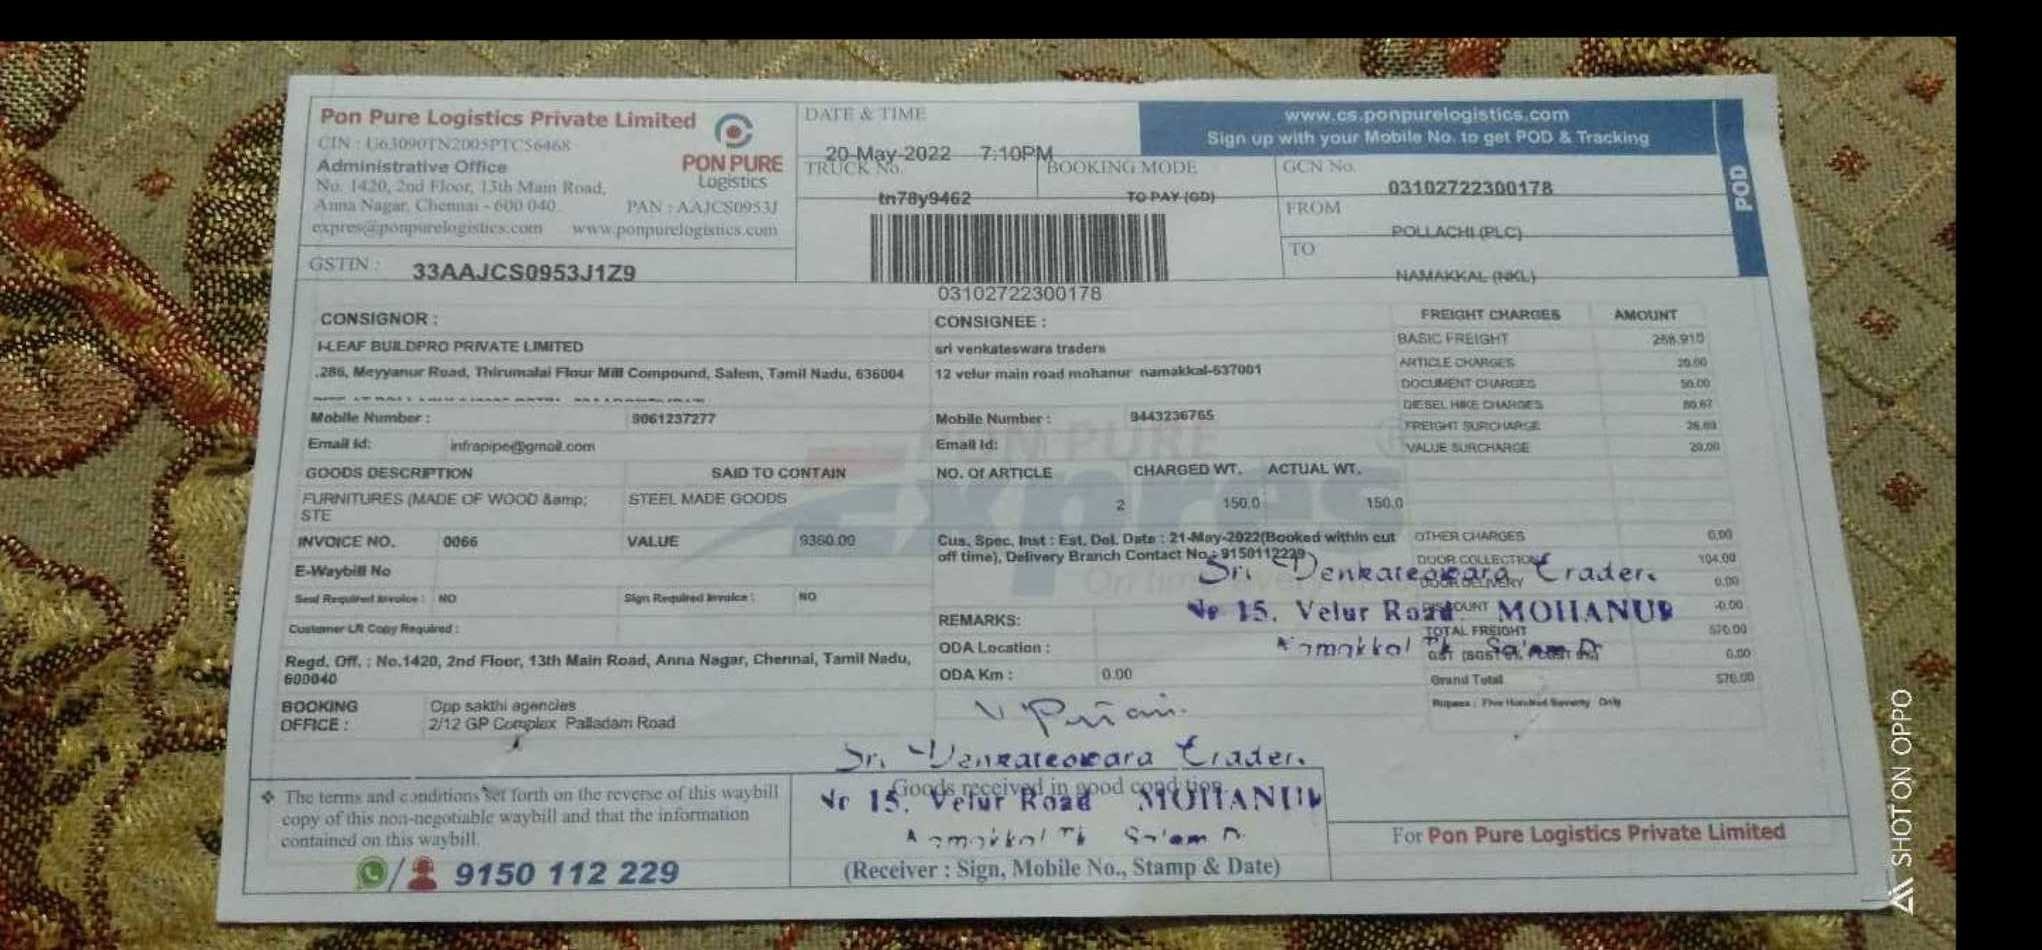 Pon Pure Logistics Private Limited
CIN : U63090TN2005PTC56468
Administrative Office
No. 1420, 2nd Floor, 13th Main Road,
Anna Nagar, Chennai - 600 040.
PAN : AAJCS0953J
expres@ponpurelogistics.com www.ponpurelogistics.com
PON PURE
Logistics
GSTIN : 33AAJCS0953J1Z9
DATE & TIME
20-May-2022 7:10PM
TRUCK No.
tn78y9462
BOOKING MODE
TO PAY (GD)
03102722300178
www.cs.ponpurelogistics.com
Sign up with your Mobile No. to get POD & Tracking
GCN No.
03102722300178
FROM
POLLACHI (PLC)
TO
NAMAKKAL (NKL)
POD
CONSIGNOR :
I-LEAF BUILDPRO PRIVATE LIMITED
.286, Meyyanur Road, Thirumalai Flour Mill Compound, Salem, Tamil Nadu, 636004
Mobile Number : 9061237277
Email Id: infrapipe@gmail.com
CONSIGNEE :
sri venkateswara traders
12 velur main road mohanur namakkal-637001
Mobile Number : 9443236765
Email Id:
FREIGHT CHARGES AMOUNT
BASIC FREIGHT 268.910
ARTICLE CHARGES 20.00
DOCUMENT CHARGES 50.00
DIESEL HIKE CHARGES 80.67
FREIGHT SURCHARGE
VALUE SURCHARGE 20.00
GOODS DESCRIPTION SAID TO CONTAIN
FURNITURES (MADE OF WOOD &amp; STEEL MADE GOODS
STE
NO. Of ARTICLE CHARGED WT. ACTUAL WT.
2 150.0 150.0
PON PURE
Expres
On time
INVOICE NO. 0066 VALUE 9360.00
E-Waybill No
Seal Required Invoice : NO Sign Required Invoice : NO
Customer LR Copy Required :
Cus. Spec. Inst : Est. Del. Date : 21-May-2022(Booked within cut
off time), Delivery Branch Contact No : 9150112229
OTHER CHARGES 0.00
DOOR COLLECTION 104.00
DOOR DELIVERY 0.00
DISCOUNT -0.00
TOTAL FREIGHT 570.00
GST 0.00
Grand Total 570.00
Rupees : Five Hundred Seventy Only
Sri Venkateswara Trader.
No 15. Velur Road MOHANUR
Namakkal Tk Salem D
REMARKS:
ODA Location :
ODA Km : 0.00
Regd. Off. : No.1420, 2nd Floor, 13th Main Road, Anna Nagar, Chennai, Tamil Nadu,
600040
BOOKING OFFICE :
Opp sakthi agencies
2/12 GP Complex Palladam Road
Sri Venkateswara Trader.
Goods received in good condition
No 15. Velur Road MOHANUR
Namakkal Tk Salem D.
(Receiver : Sign, Mobile No., Stamp & Date)
❖ The terms and conditions set forth on the reverse of this waybill
copy of this non-negotiable waybill and that the information
contained on this waybill.
9150 112 229
For Pon Pure Logistics Private Limited
SHOT ON OPPO